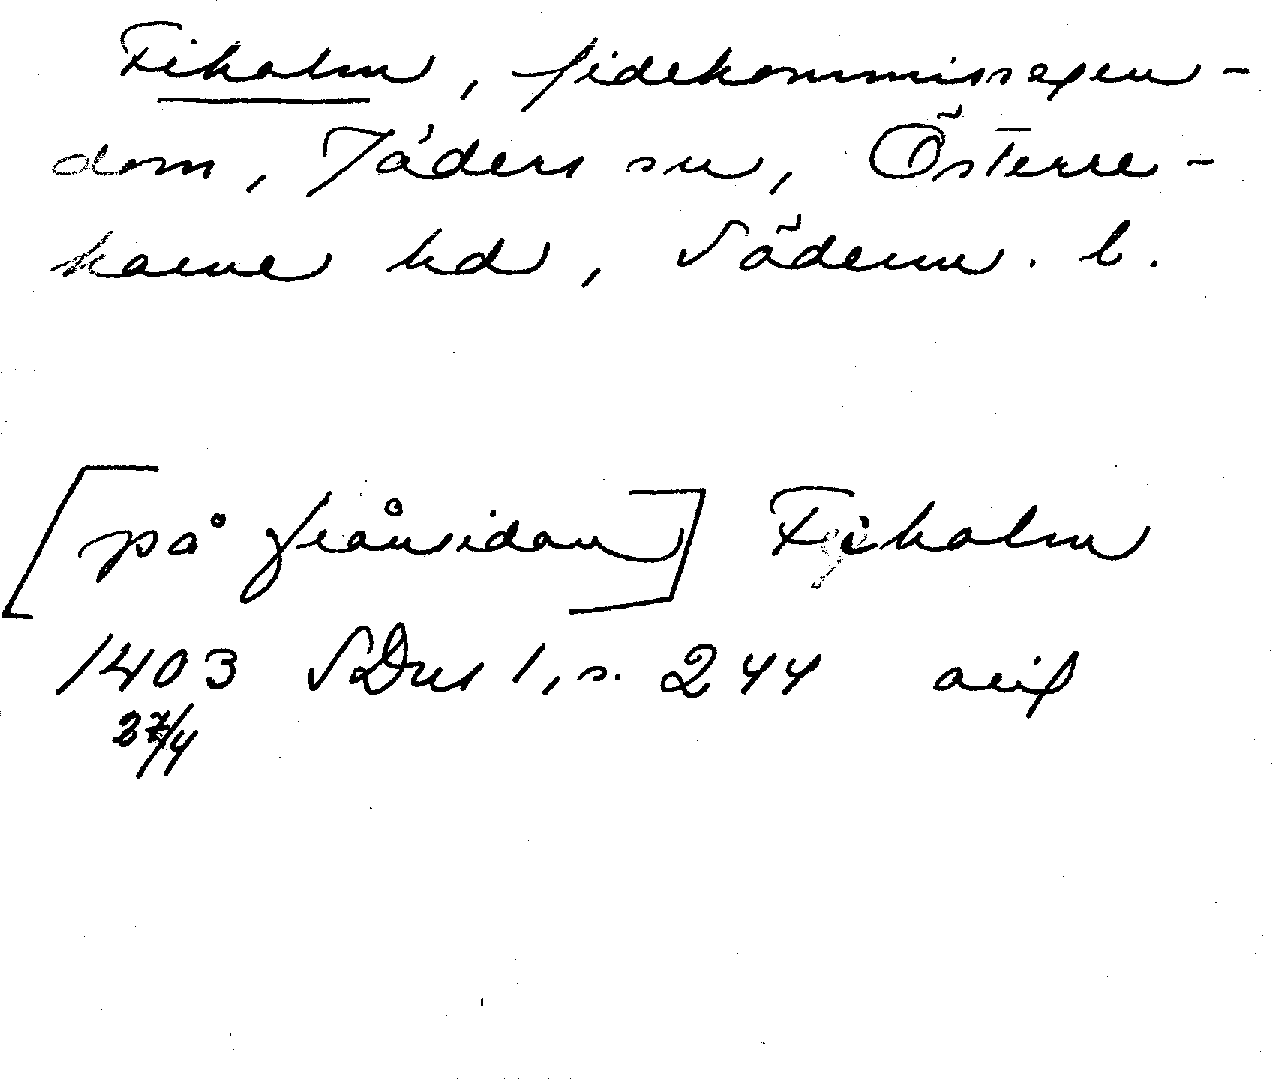 Fiholm, fideikommissegen-
dom, Jäders sn, Österre-
karne hd, Söderm. l.
[på frånsidan] Fiholm
1403 SDns 1, s. 244 avskr
27/4